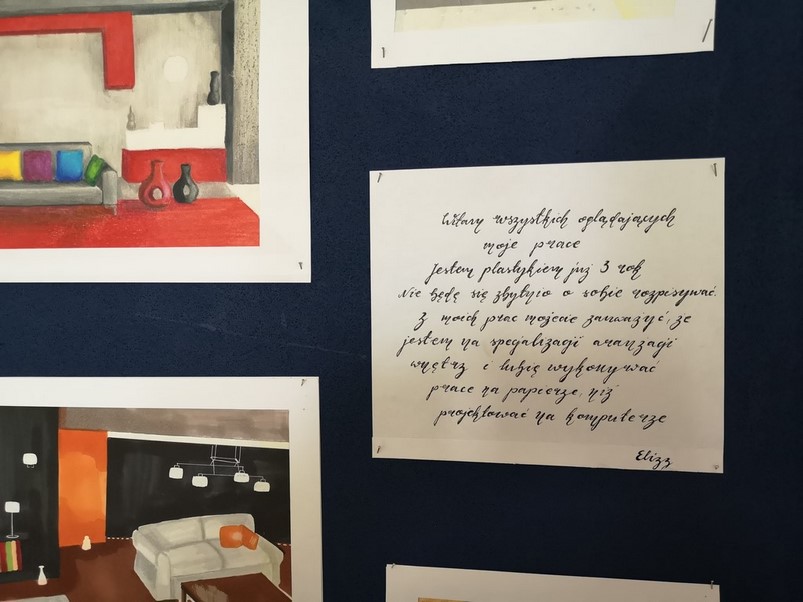 Witam wszystkich oglądających
moje prace
Jestem plastykiem już 3 rok
Nie będę się zbytnio o sobie rozpisywać.
Z moich prac możecie zauważyć, że
jestem na specjalizacji aranżacji
wnętrz i lubię wykonywać
prace na papierze, niż
projektować na komputerze
Elizz